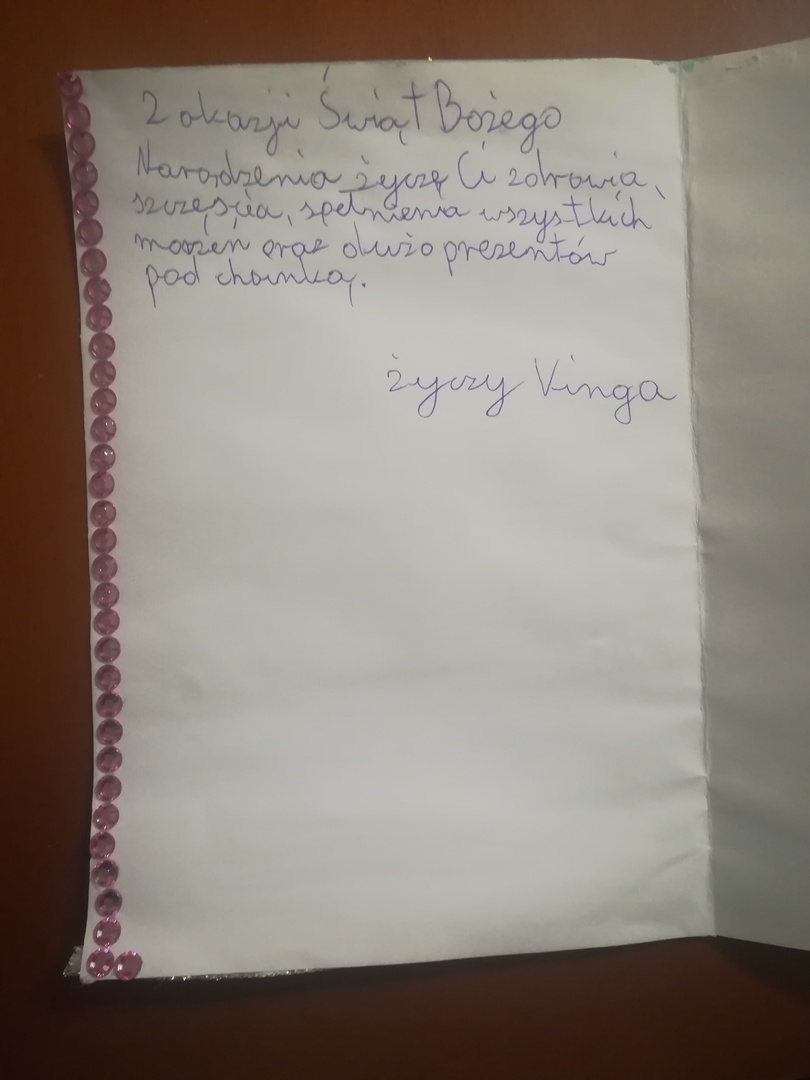 Z okazji Świąt Bożego
Narodzenia życzę Ci zdrowia,
szczęścia, spełnienia wszystkich
marzeń oraz dużo prezentów
pod choinką.
życzy Vinga